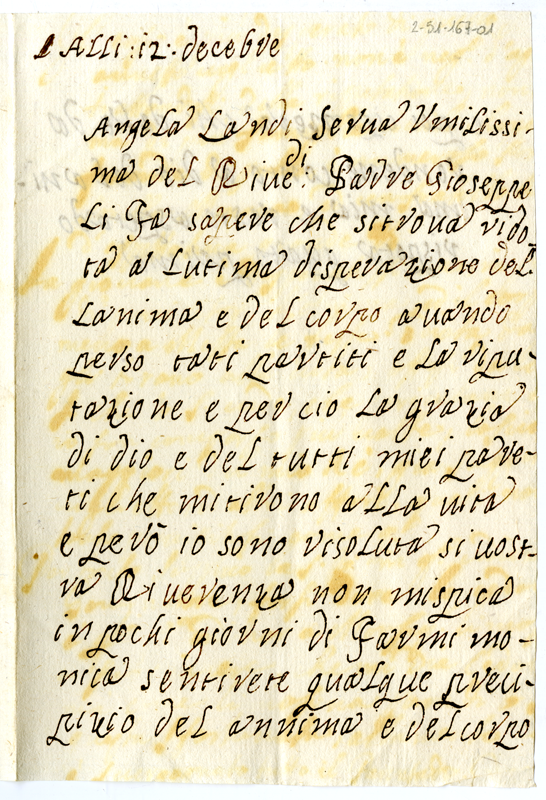 2-51-167-01
Alli: 12: decebre
Angela Landi Serva Vmilissi-
ma del Rive:di Padre Gioseppe
li Fa sapere che sitrova rido
ta a lutima disperazione del
lanima e del corpo avando
perso tati partiti e la ripu-
tazione e per cio la grazia
di dio e del tutti miei pare-
ti che mitirono alla vita
e però io sono risoluta si vost-
ra Riverenza non mispica
in pochi giorni di Farmi mo-
nica sentirete qualque preci-
pizio del annima e del corpo